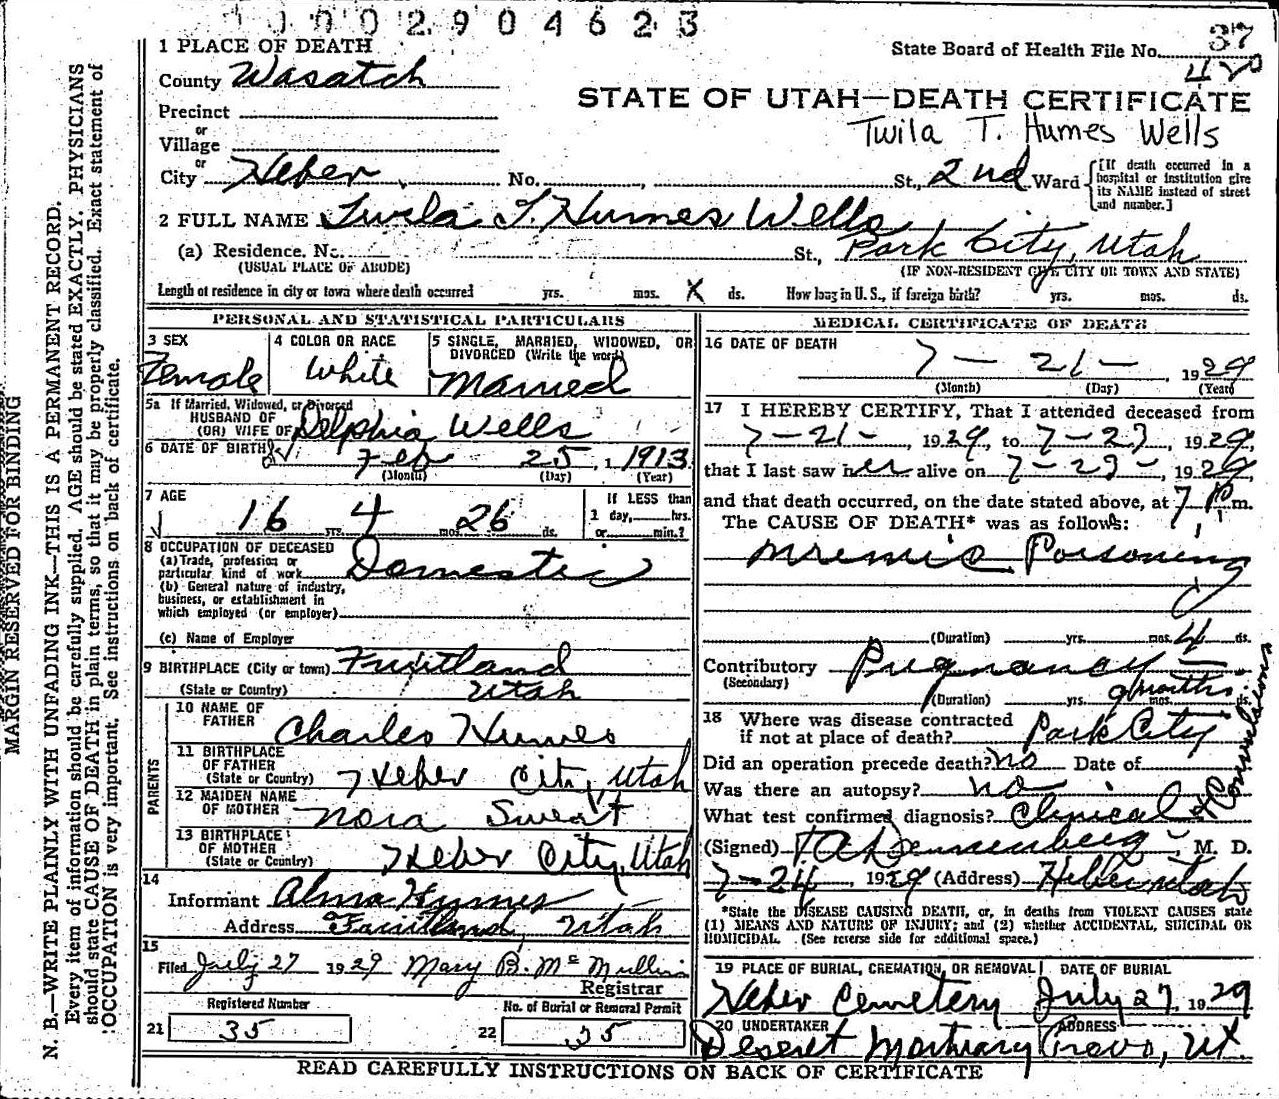 0002904623
State Board of Health File No. 37
420
1 PLACE OF DEATH
County Wasatch
STATE OF UTAH—DEATH CERTIFICATE
Twila T. Humes Wells
Precinct
or
Village
or
City Heber No. , St., 2nd Ward
[If death occurred in a hospital or institution give its NAME instead of street and number.]
2 FULL NAME Twila T. Humes Wells
(a) Residence. No. St., Park City, Utah
(USUAL PLACE OF ABODE) (IF NON-RESIDENT GIVE CITY OR TOWN AND STATE)
Length of residence in city or town where death occurred yrs. mos. X ds. How long in U. S., if foreign birth? yrs. mos. ds.
PERSONAL AND STATISTICAL PARTICULARS
3 SEX Female
4 COLOR OR RACE White
5 SINGLE, MARRIED, WIDOWED, OR DIVORCED (Write the word) Married
5a If Married, Widowed, or Divorced
HUSBAND OF
(OR) WIFE OF Delphia Wells
6 DATE OF BIRTH Feb 25, 1913
(Month) (Day) (Year)
7 AGE 16 yrs. 4 mos. 26 ds.
If LESS than
1 day, hrs.
or min.?
8 OCCUPATION OF DECEASED
(a) Trade, profession or
particular kind of work Domestic
(b) General nature of industry,
business, or establishment in
which employed (or employer)
(c) Name of Employer
9 BIRTHPLACE (City or town) Fruitland
(State or Country) Utah
PARENTS
10 NAME OF FATHER Charles Humes
11 BIRTHPLACE OF FATHER (State or Country) Heber City, Utah
12 MAIDEN NAME OF MOTHER Nora Sweat
13 BIRTHPLACE OF MOTHER (State or Country) Heber City, Utah
14
Informant Alma Humes
Address Fruitland, Utah
15
Filed July 27 1929 Mary B. McMullin
Registrar
Registered Number
21 35
No. of Burial or Removal Permit
22 35
MEDICAL CERTIFICATE OF DEATH
16 DATE OF DEATH
7 - 21 - , 1929
(Month) (Day) (Year)
17 I HEREBY CERTIFY, That I attended deceased from
7-21-, 1929, to 7-23, 1929,
that I last saw her alive on 7-23-, 1929
and that death occurred, on the date stated above, at 7 P m.
The CAUSE OF DEATH* was as follows:
Uremic Poisoning
(Duration) yrs. mos. 4 ds.
Contributory Pregnancy
(Secondary)
(Duration) yrs. 9 months mos. ds.
18 Where was disease contracted
if not at place of death? Park City
Did an operation precede death? no Date of
Was there an autopsy? no
What test confirmed diagnosis? Clinical & Convulsions
(Signed) , M. D.
7-24, 1929 (Address) Heber, Utah
*State the DISEASE CAUSING DEATH, or, in deaths from VIOLENT CAUSES state
(1) MEANS AND NATURE OF INJURY; and (2) whether ACCIDENTAL, SUICIDAL OR
HOMICIDAL. (See reverse side for additional space.)
19 PLACE OF BURIAL, CREMATION, OR REMOVAL DATE OF BURIAL
Heber Cemetery July 27, 1929
20 UNDERTAKER ADDRESS
Deseret Mortuary Provo, Ut.
READ CAREFULLY INSTRUCTIONS ON BACK OF CERTIFICATE
MARGIN RESERVED FOR BINDING
N. B.—WRITE PLAINLY WITH UNFADING INK—THIS IS A PERMANENT RECORD.
Every item of information should be carefully supplied. AGE should be stated EXACTLY. PHYSICIANS
should state CAUSE OF DEATH in plain terms, so that it may be properly classified. Exact statement of
OCCUPATION is very important. See instructions on back of certificate.